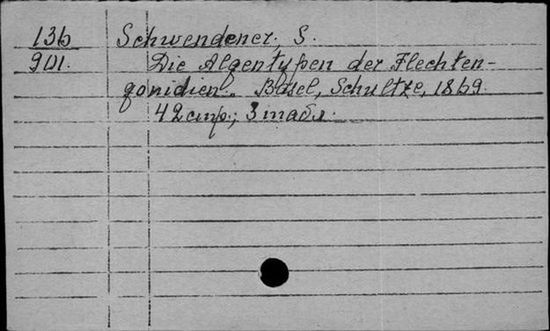 136 Schwendener, S.
901. Die Algentypen der Flechten-
gonidien. Basel, Schultze, 1869.
42 стр.; 3 табл.